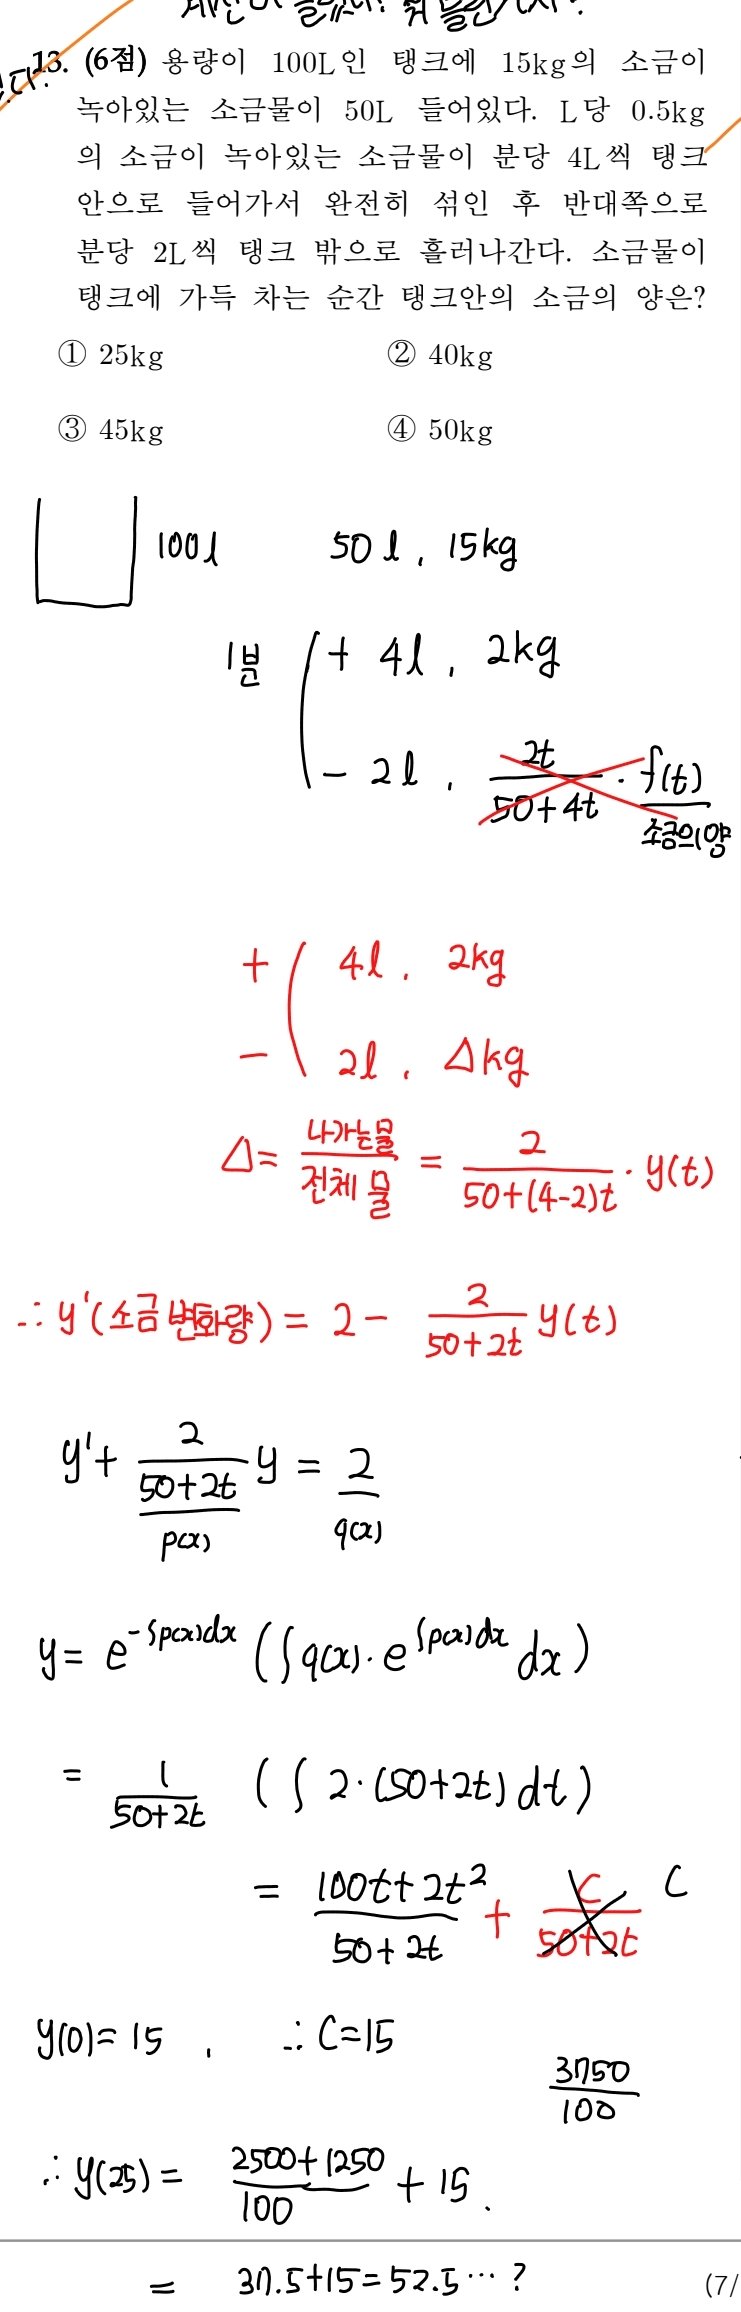 13. (6점) 용량이 100L인 탱크에 15kg의 소금이
녹아있는 소금물이 50L 들어있다. L당 0.5kg
의 소금이 녹아있는 소금물이 분당 4L씩 탱크
안으로 들어가서 완전히 섞인 후 반대쪽으로
분당 2L씩 탱크 밖으로 흘러나간다. 소금물이
탱크에 가득 차는 순간 탱크안의 소금의 양은?
① 25kg ② 40kg
③ 45kg ④ 50kg
100l 50l, 15kg
1분 ( + 4l, 2kg
- 2l, 2t/(50+4t) · f(t)
소금의 양
+ ( 4l, 2kg
- ( 2l, △kg
△= 나가는물/전체 물 = 2/(50+(4-2)t) · y(t)
∴ y'(소금변화량) = 2 - 2/(50+2t) y(t)
y' + 2/(50+2t) y = 2
p(x) q(x)
y = e^(-∫p(x)dx) (∫q(x)·e^(∫p(x)dx) dx)
= 1/(50+2t) (∫2·(50+2t)dt)
= (100t+2t²)/(50+2t) + C/(50+2t) C
y(0)=15, ∴ C=15
3750/100
∴ y(25) = (2500+1250)/100 + 15.
= 37.5+15=52.5…?
(7/